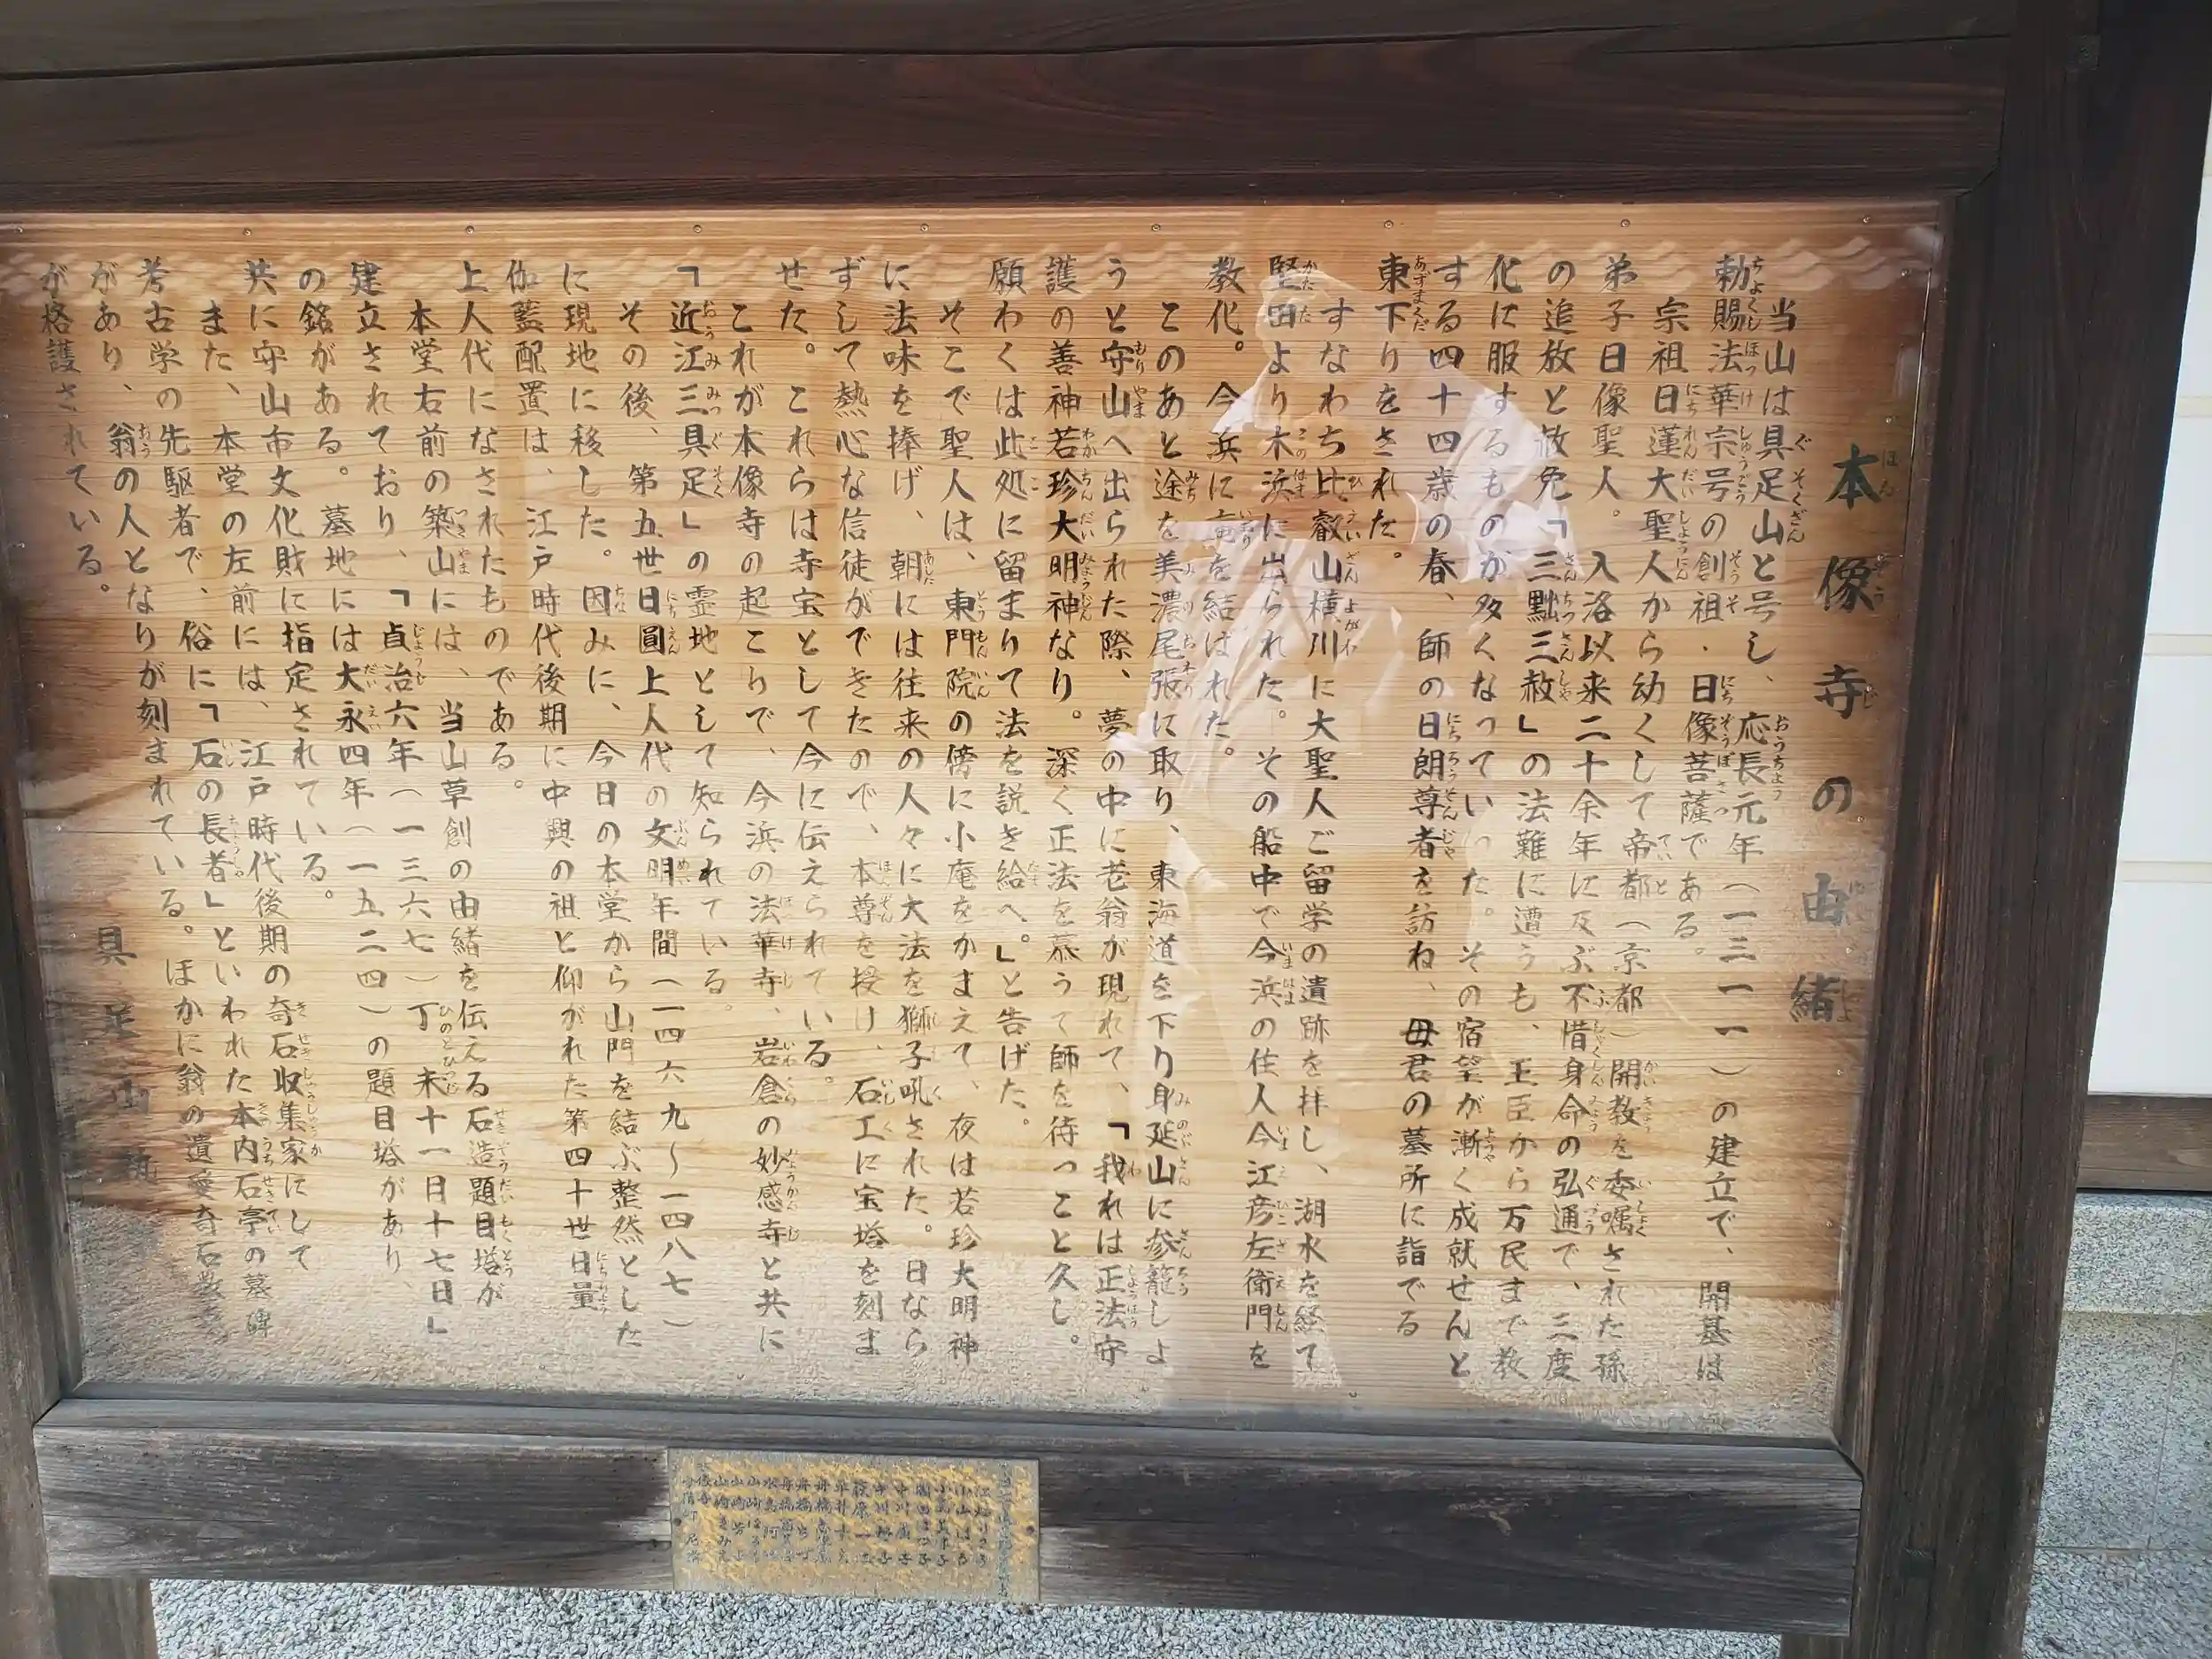 本像寺の由緒
当山は具足山と号し、応長元年(一三一一)の建立で、開基は
勅賜法華宗号の創祖・日像菩薩である。
宗祖日蓮大聖人から幼くして帝都(京都)開教を委嘱された孫
弟子日像聖人。入洛以来二十余年に及ぶ不惜身命の弘通で、三度
の追放と赦免「三黜三赦」の法難に遭うも、王臣から万民まで教
化に服するものが多くなっていった。その宿望が漸く成就せんと
する四十四歳の春、師の日朗尊者を訪ね、母君の墓所に詣でる
東下りをされた。
すなわち比叡山横川に大聖人ご留学の遺跡を拝し、湖水を経て
堅田より木浜に出られた。その船中で今浜の住人今江彦左衛門を
教化。今浜に庵を結ばれた。
このあと途を美濃尾張に取り、東海道を下り身延山に参籠しよ
うと守山へ出られた際、夢の中に老翁が現れて、「我れは正法守
護の善神若珍大明神なり。深く正法を慕うて師を待つこと久し。
願わくは此処に留まりて法を説き給へ。」と告げた。
そこで聖人は、東門院の傍に小庵をかまえて、夜は若珍大明神
に法味を捧げ、朝には往来の人々に大法を獅子吼された。日なら
ずして熱心な信徒ができたので、本尊を授け、石工に宝塔を刻ま
せた。これらは寺宝として今に伝えられている。
これが本像寺の起こりで、今浜の法華寺、岩倉の妙感寺と共に
「近江三具足」の霊地として知られている。
その後、第五世日圓上人代の文明年間(一四六九〜一四八七)
に現地に移した。因みに、今日の本堂から山門を結ぶ整然とした
伽藍配置は、江戸時代後期に中興の祖と仰がれた第四十世日量
上人代になされたものである。
本堂右前の築山には、当山草創の由緒を伝える石造題目塔が
建立されており、「貞治六年(一三六七)丁未十一月十七日」
の銘がある。墓地には大永四年(一五二四)の題目塔があり、
共に守山市文化財に指定されている。
また、本堂の左前には、江戸時代後期の奇石収集家にして
考古学の先駆者で、俗に「石の長者」といわれた木内石亭の墓碑
があり、翁の人となりが刻まれている。ほかに翁の遺愛奇石数
が格護されている。
具足山